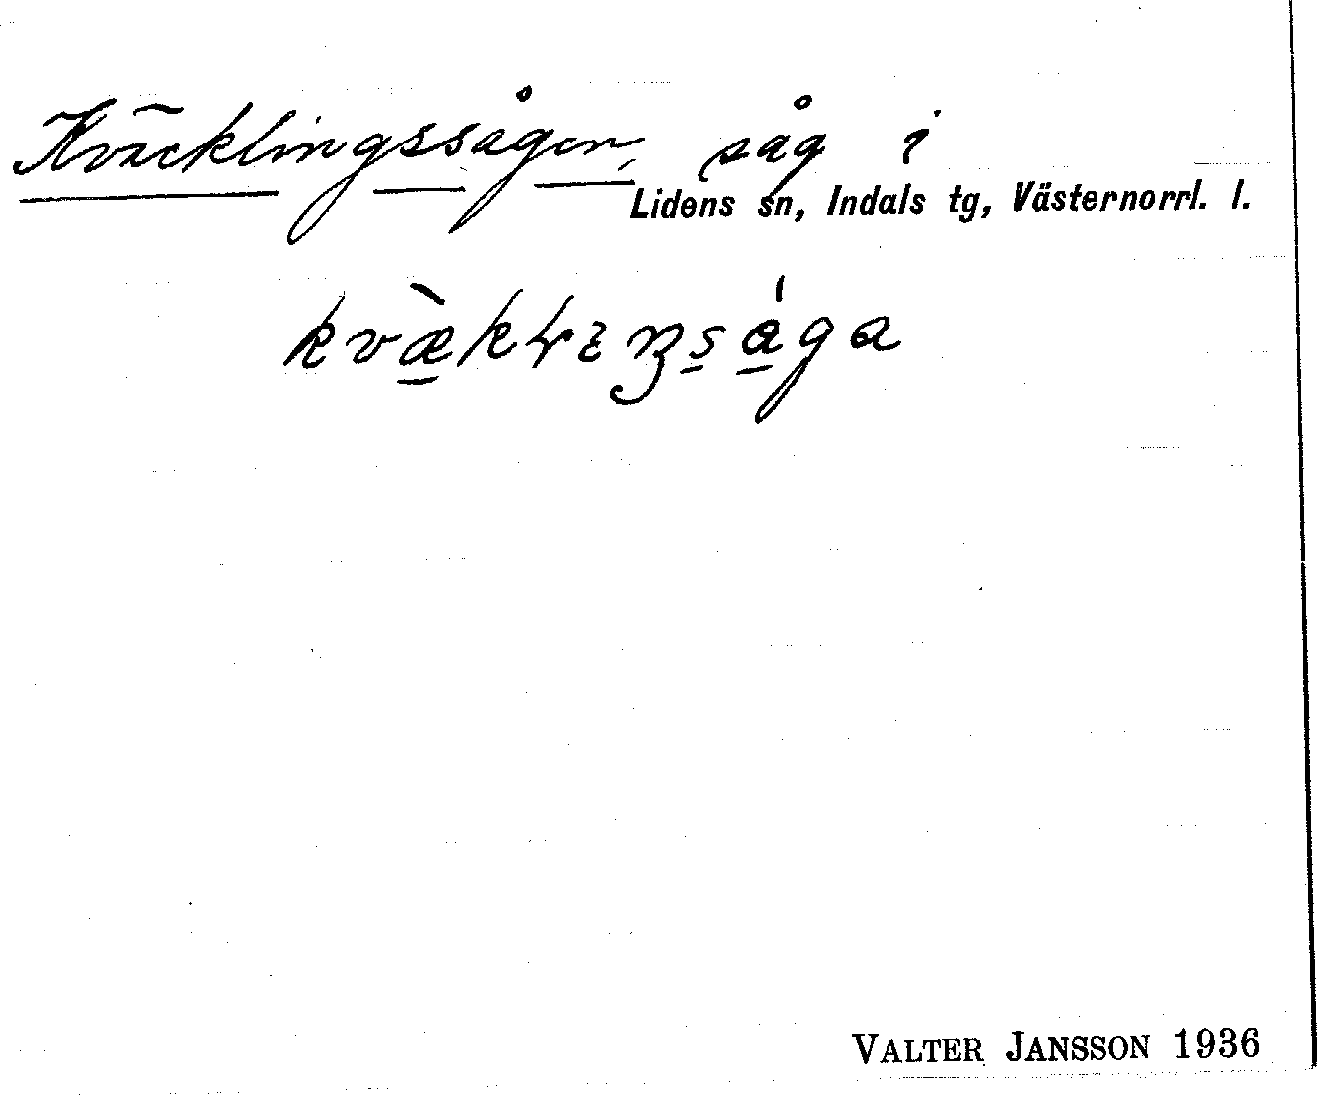 Kväcklingssågen, såg i
Lidens sn, Indals tg, Västernorrl. l.
VALTER JANSSON 1936